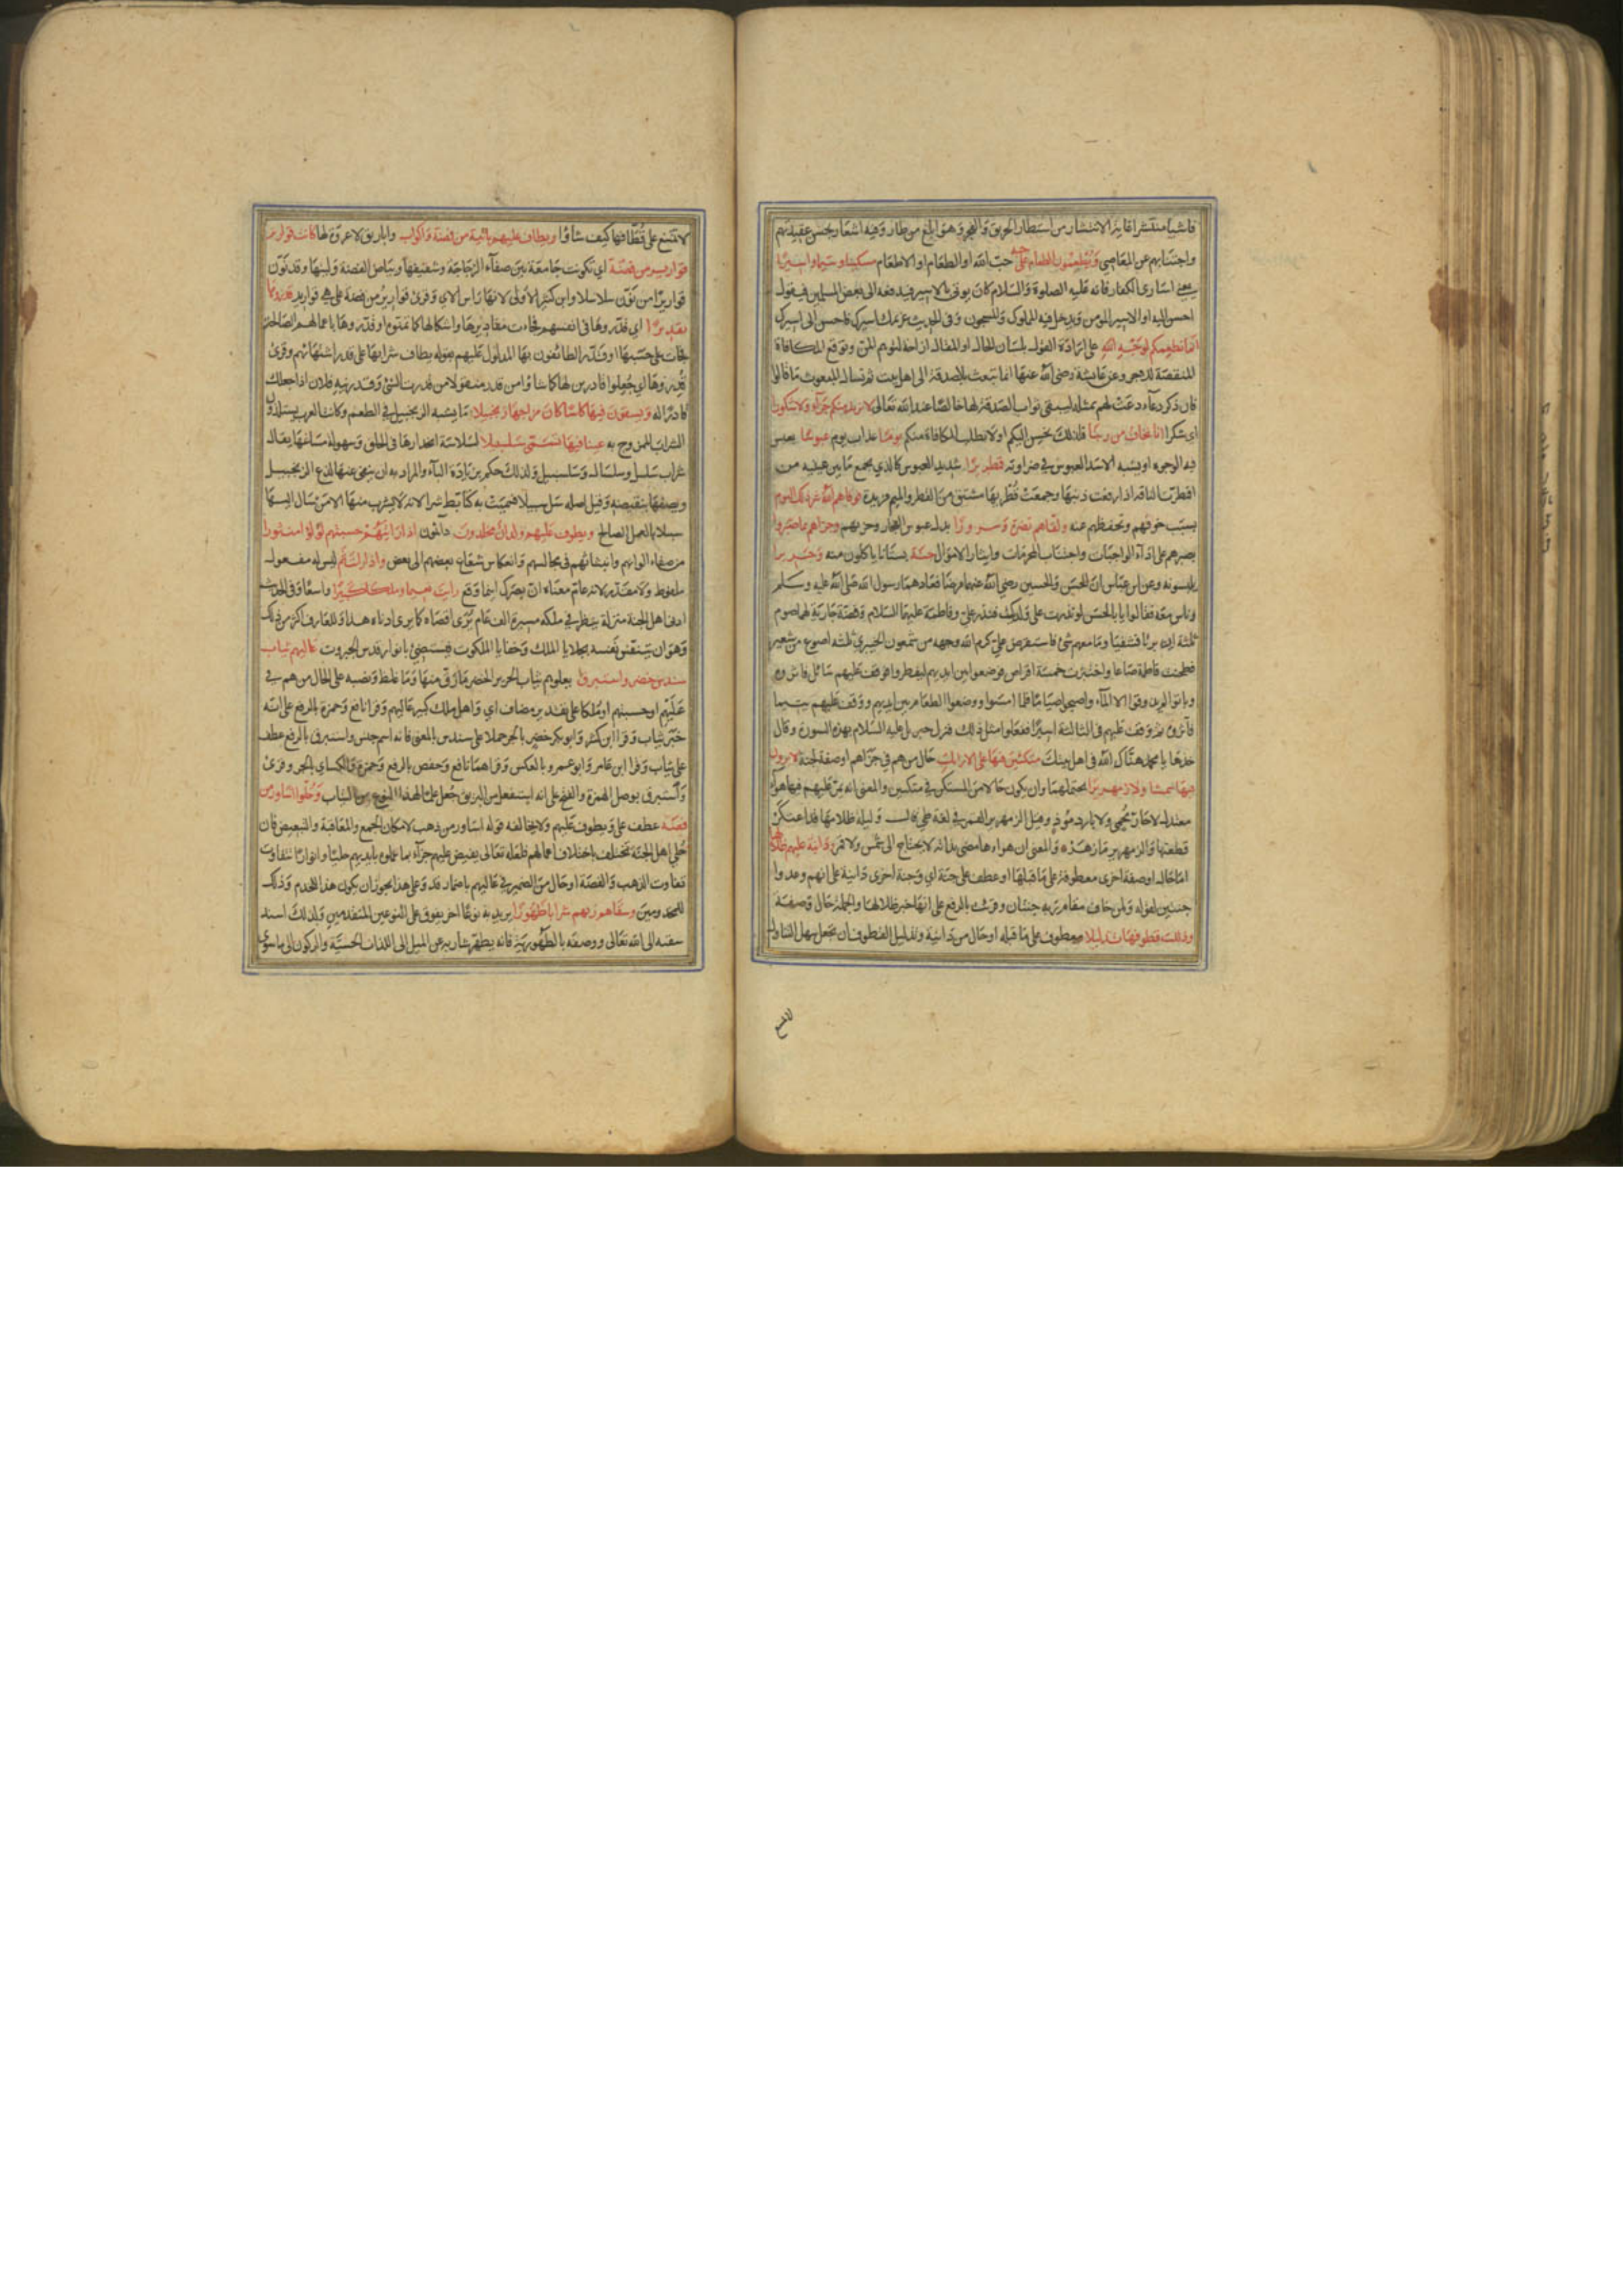 فاشيا منتشرا غاية الانتشار من استطار الحريق والفجر وهو ابلغ من طار وفيه اشعار بحسن عقيدتهم
واجتنابهم عن المعاصى ويطعمون الطعام على حبه حب الله او الطعام او الاطعام مسكينا ويتيما واسيرا
يعنى اسارى الكفار فانه عليه الصلوة والسلام كان يوتى بالاسير فيدفعه الى بعض المسلمين فيقول
احسن اليه او الاسير المومن ويدخل فيه المملوك والمسجون وفى الحديث غريمك اسيرك فاحسن الى اسيرك
انما نطعمكم لوجه الله على ارادة القول بلسان الحال او المقال ازاحة لتوهم المن وتوقع المكافاة
المنقصة للاجر وعن عايشة رضى الله عنها انها تبعث بالصدقة الى اهل بيت ثم تسال المبعوث ما قالوا
فان ذكر دعاء دعت لهم بمثله ليبقى ثواب الصدقة لها خالصا عند الله تعالى لا نريد منكم جزاء ولا شكورا
اى شكرا انا نخاف من ربنا فلذلك نحسن اليكم او لا نطلب المكافاة منكم يوما عذاب يوم عبوسا يعبس
فيه الوجوه او يشبه الاسد العبوس في ضراوته قمطريرا شديد العبوس كالذي يجمع ما بين عينيه من
اقمطرت الناقة اذا رفعت ذنبها وجمعت قطريها مشتق من القطر والميم مزيدة فوقاهم الله شر ذلك اليوم
بسبب خوفهم وتحفظهم عنه ولقاهم نضرة وسرورا بدل عبوس الفجار وحزنهم وجزاهم بما صبروا
بصبرهم على اداء الواجبات واجتناب المحرمات وايثار الاموال جنة بستانا ياكلون منه وحريرا
يلبسونه وعن ابن عباس ان الحسن والحسين رضى الله عنهما مرضا فعادهما رسول الله صلى الله عليه وسلم
وناس معه فقالوا يا ابا الحسن لو نذرت على ولديك فنذر على وفاطمة عليهما السلام وفضة جارية لهما صوم
ثلثة ان برئا فشفيا وما معهم شئ فاستقرض علي كرم الله وجهه من شمعون الخيبري ثلثه اصوع من شعير
فطحنت فاطمة صاعا واختبزت خمسة اقراص فوضعوا بين ايديهم ليفطروا فوقف عليهم سائل فاثروه
وباتوا لم يذوقوا الا الماء واصبحوا صياما فلما امسوا ووضعوا الطعام بين ايديهم ووقف عليهم يتيما
فآثروه ثم وقف عليهم فى الثالثة اسيرا ففعلوا مثل ذلك فنزل جبريل عليه السلام بهذه السورة وقال
خذها يا محمد هناك الله فى اهل بيتك متكئين فيها على الارائك حال من هم فى جزاهم او صفة لجنة لا يرون
فيها شمسا ولا زمهريرا يحتملهما وان يكون حالا من المستكن في متكئين والمعنى انه يمر عليهم فيها هواء
معتدل لا حار يحمي ولا بارد موذ وقيل الزمهرير القمر في لغة طي قال وليلة ظلامها قد اعتكر
قطعتها والزمهرير ما زهر والمعنى ان هواءها مضى بذاته لا يحتاج الى شمس ولا قمر ودانية عليهم ظلالها
اما حال او صفة اخرى معطوفة على ما قبلها او عطف على جنة اي وجنة اخرى دانية على انهم وعدوا
جنتين لقوله ولمن خاف مقام ربه جنتان وقرئت بالرفع على انها خبر ظلالها والجملة حال وصفة
وذللت قطوفها تذليلا معطوف على ما قبله او حال من دانية وتذليل القطوف ان تجعل سهل التناول
لا تمتنع
لا تمتنع على قطافها كيف شاؤا ويطاف عليهم بانية من فضة واكواب واباريق لا عروة لها كانت قوارير
قوارير من فضة اي تكونت جامعة بين صفاء الزجاجة وشفيفها وبياض الفضة ولينها وقد نون
قواريرا من نون سلاسلا وابن كثير الاولى لانها راس الاي وقرئ قوارير من فضة على هي قوارير قدروها
تقديرا اي قدروها فى انفسهم فجاءت مقاديرها واشكالها كما تمنوه او قدروها باعمالهم الصالحة
فجات على حسبها او قدر الطائفون بها المدلول عليهم بقوله يطاف شرابها على قدر اشتهائهم وقرئ
قدروها اي جعلوا قادرين لها كما شاؤا من قدر منقولا من قدرت الشئ وقدرنيه فلان اذا جعلك
قادرا له ويسقون فيها كاسا كان مزاجها زنجبيلا ما يشبه الزنجبيل في الطعم وكانت العرب يستلذون
الشراب الممزوج به عينا فيها تسمى سلسبيلا لسلاسة انحدارها فى الحلق وسهولة مساغها يقال
شراب سلسل وسلسال وسلسبيل ولذلك حكم بزيادة الباء والمراد به ان ينفى عنها لذع الزنجبيل
ويصفها بنقيضه وقيل اصله سل سبيلا فسميت به كتابط شرا لانه لا يشرب منها الا من سال اليها
سبيلا بالعمل الصالح ويطوف عليهم ولدان مخلدون دائمون اذا رايتهم حسبتهم لؤلؤا منثورا
من صفاء الوانهم وانبثاثهم فى مجالسهم وانعكاس شعاع بعضهم الى بعض واذا رايت ثم ليس له مفعول
ملفوظ ولا مقدر لانه عام معناه ان بصرك اينما وقع رايت نعيما وملكا كبيرا واسعا وفى الحديث
ادنى اهل الجنة منزلة ينظر في ملكه مسيرة الف عام يرى اقصاه كما يرى ادناه هذا وللعارف اكثر من ذلك
وهو ان تنتقش نفسه بجلايا الملك وخفايا الملكوت فيستضئ بانوار قدس الجبروت عاليهم ثياب
سندس خضر واستبرق يعلوهم ثياب الحرير الخضر ما رق منها وما غلظ ونصبه على الحال من هم في
عليهم او حسبتهم او ملكا على تقدير مضاف اي واهل ملك كبير عاليهم وقرا نافع وحمزة بالرفع على انه
خبر ثياب وقرا ابن كثير وابو بكر خضر بالجر حملا على سندس بالمعنى فانه اسم جنس واستبرق بالرفع عطف
على ثياب وقرا ابن عامر وابو عمرو بالعكس وقراهما نافع وحفص بالرفع وحمزة والكسائي بالجر وقرئ
واستبرق بوصل الهمزة والفتح على انه استفعل من البريق جعل علما لهذا النوع من الثياب وحلوا اساور من
فضة عطف على ويطوف عليهم ولا يخالفه قوله اساور من ذهب لامكان الجمع والمعاقبة والتبعيض فان
حلي اهل الجنة تختلف باختلاف اعمالهم فلعله تعالى يفيض عليهم جزاء بما عملوه بايديهم حليا وانوارا تتفاوت
تفاوت الذهب والفضة او حال من الضمير في عاليهم باضمار قد وعلى هذا يجوز ان يكون هذا للخدم وذلك
للمخدومين وسقاهم ربهم شرابا طهورا يريد به نوعا اخر يفوق على النوعين المتقدمين ولذلك اسند
سقيه الى الله تعالى ووصفه بالطهورية فانه يطهر شاربه عن الميل الى اللذات الحسية والركون الى ما سوى